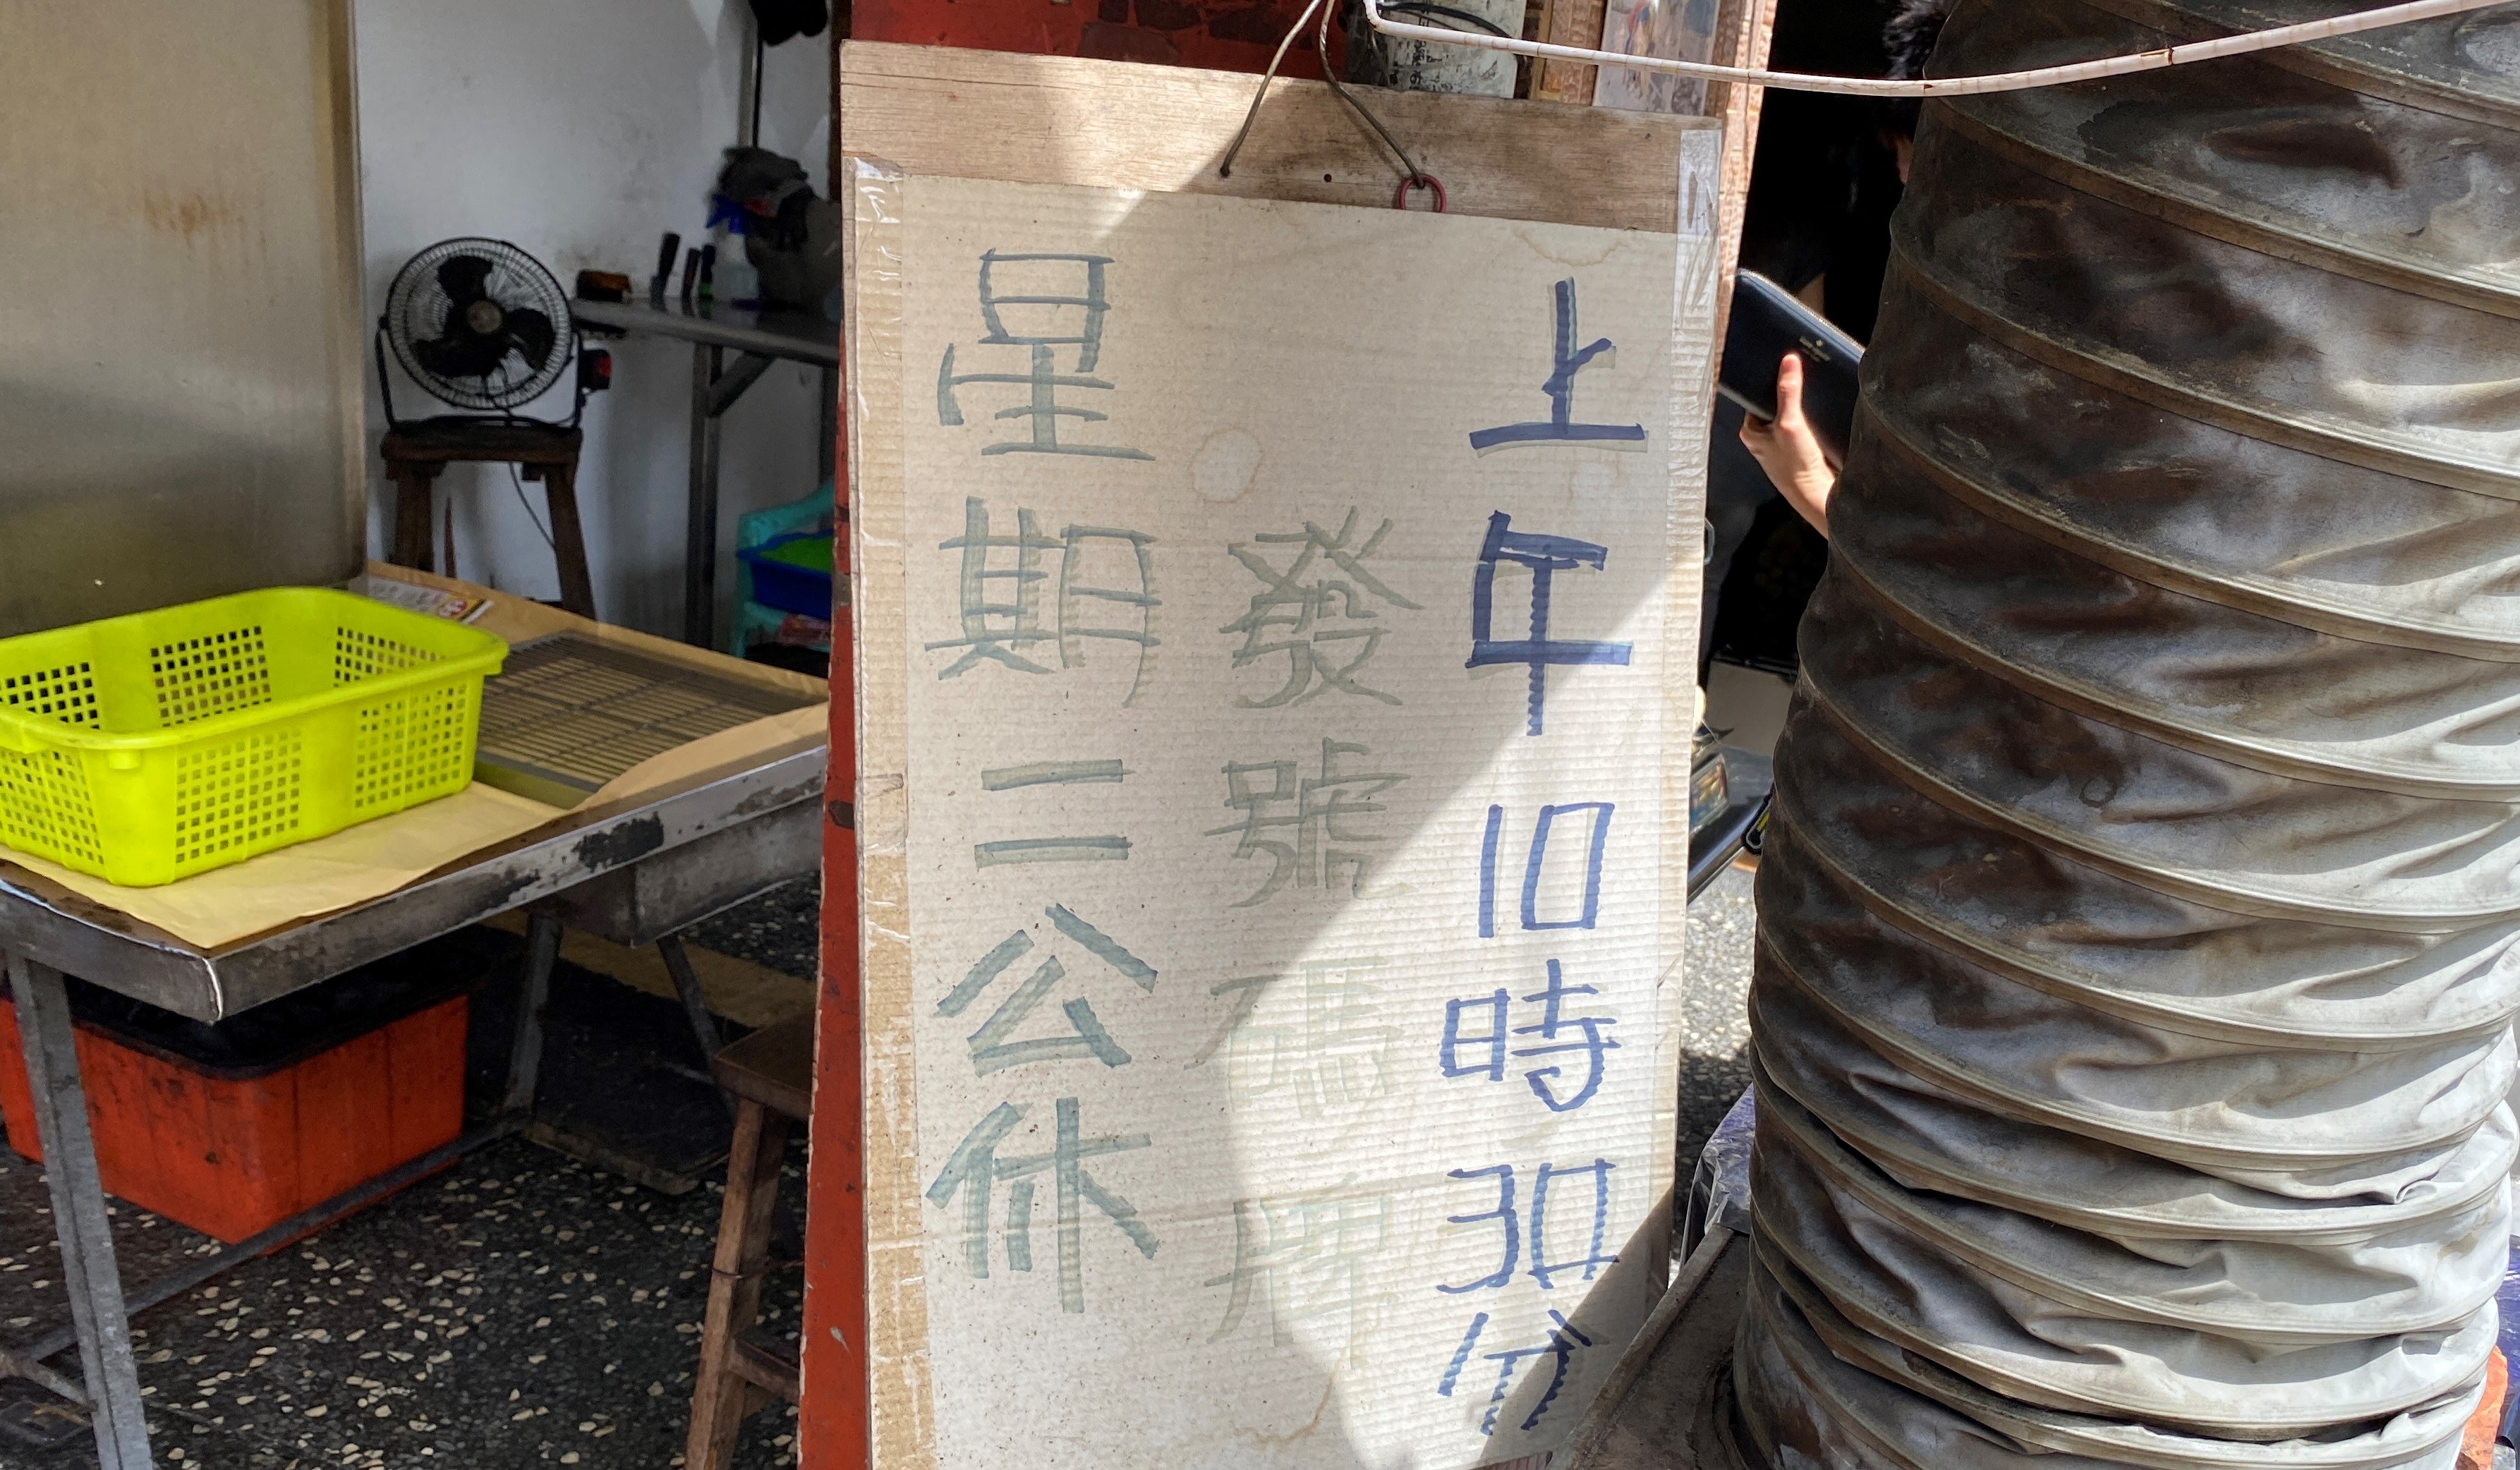 上午10時30分
發號碼牌
星期二公休